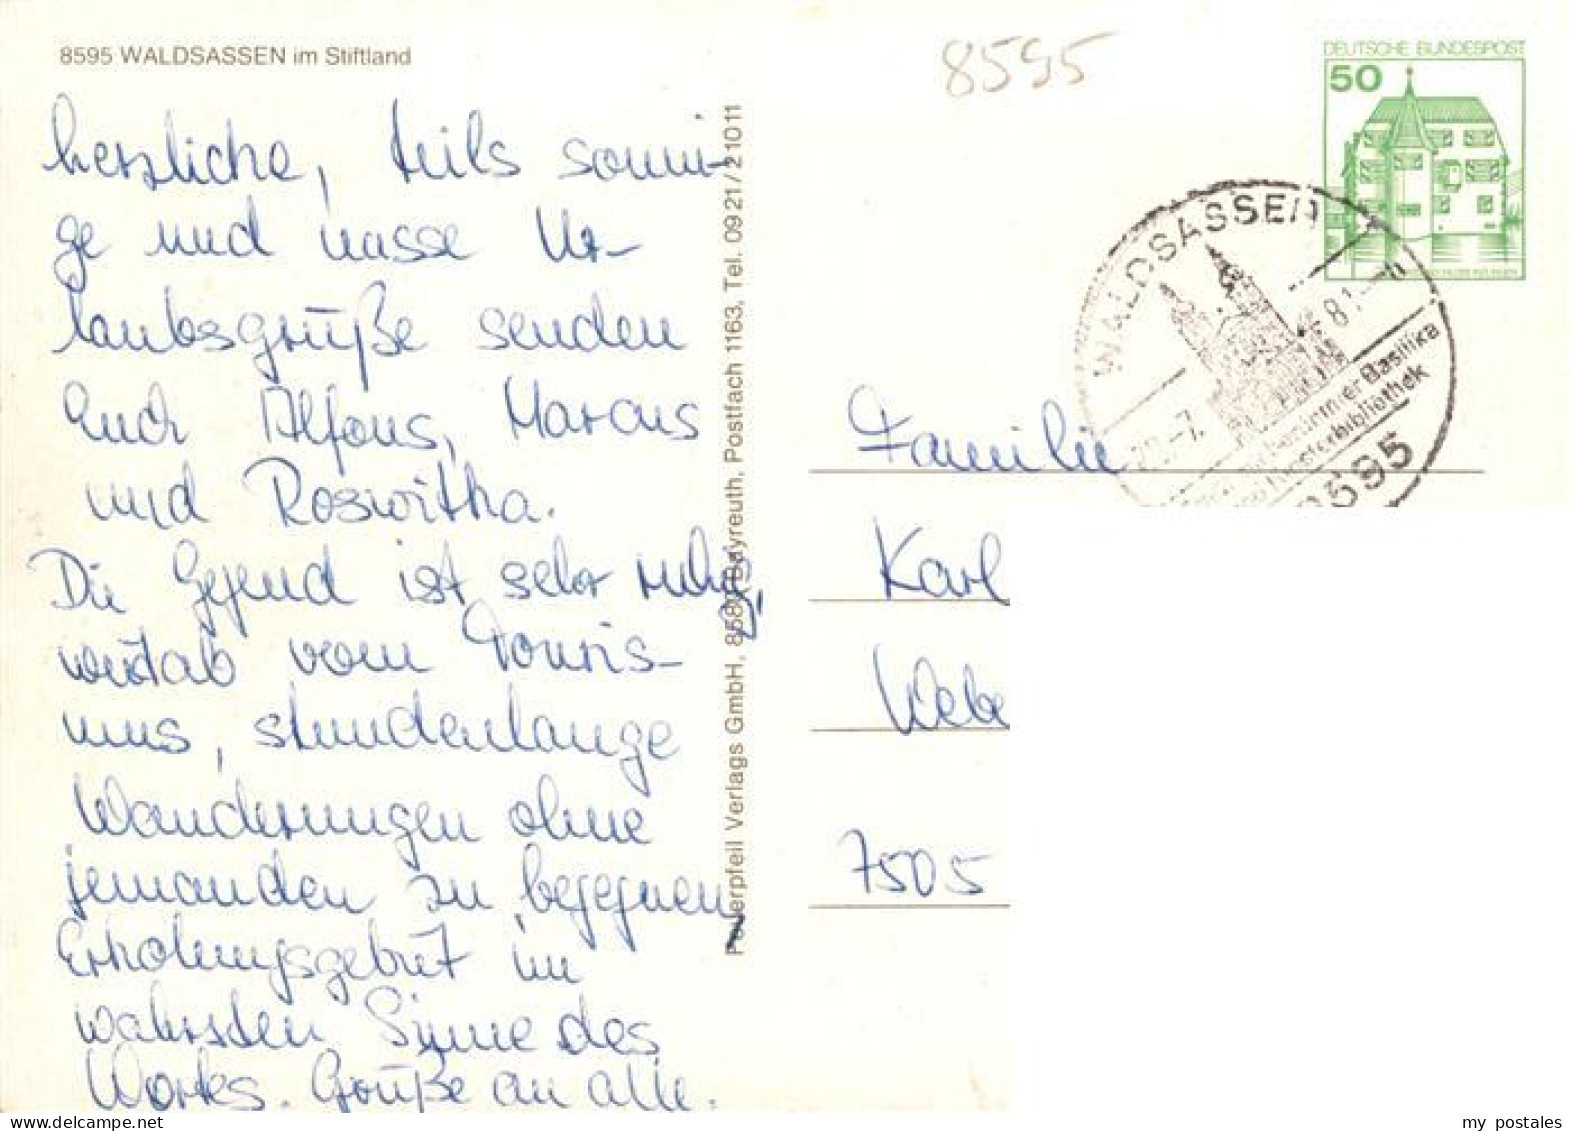 8595 WALDSASSEN im Stiftland
herzliche, teils sonni-
ge und nasse Ur-
laubsgrüße senden
Euch Alfons, Marcus
und Roswitha.
Die Gegend ist sehr ruhig,
weitab vom Touris-
mus, stundenlange
Wanderungen ohne
jemanden zu begegnen,
Erholungsgebiet im
wahrsten Sinne des
Wortes. Grüße an alle.
Verlags GmbH, 8580 Bayreuth, Postfach 1163, Tel. 09 21 / 2 10 11
8595
DEUTSCHE BUNDESPOST
50
WALDSASSEN
20.-7. 81
berühmter Basilika
Klosterbibliothek
8595
Familie
Karl
Webe
7505
my postales